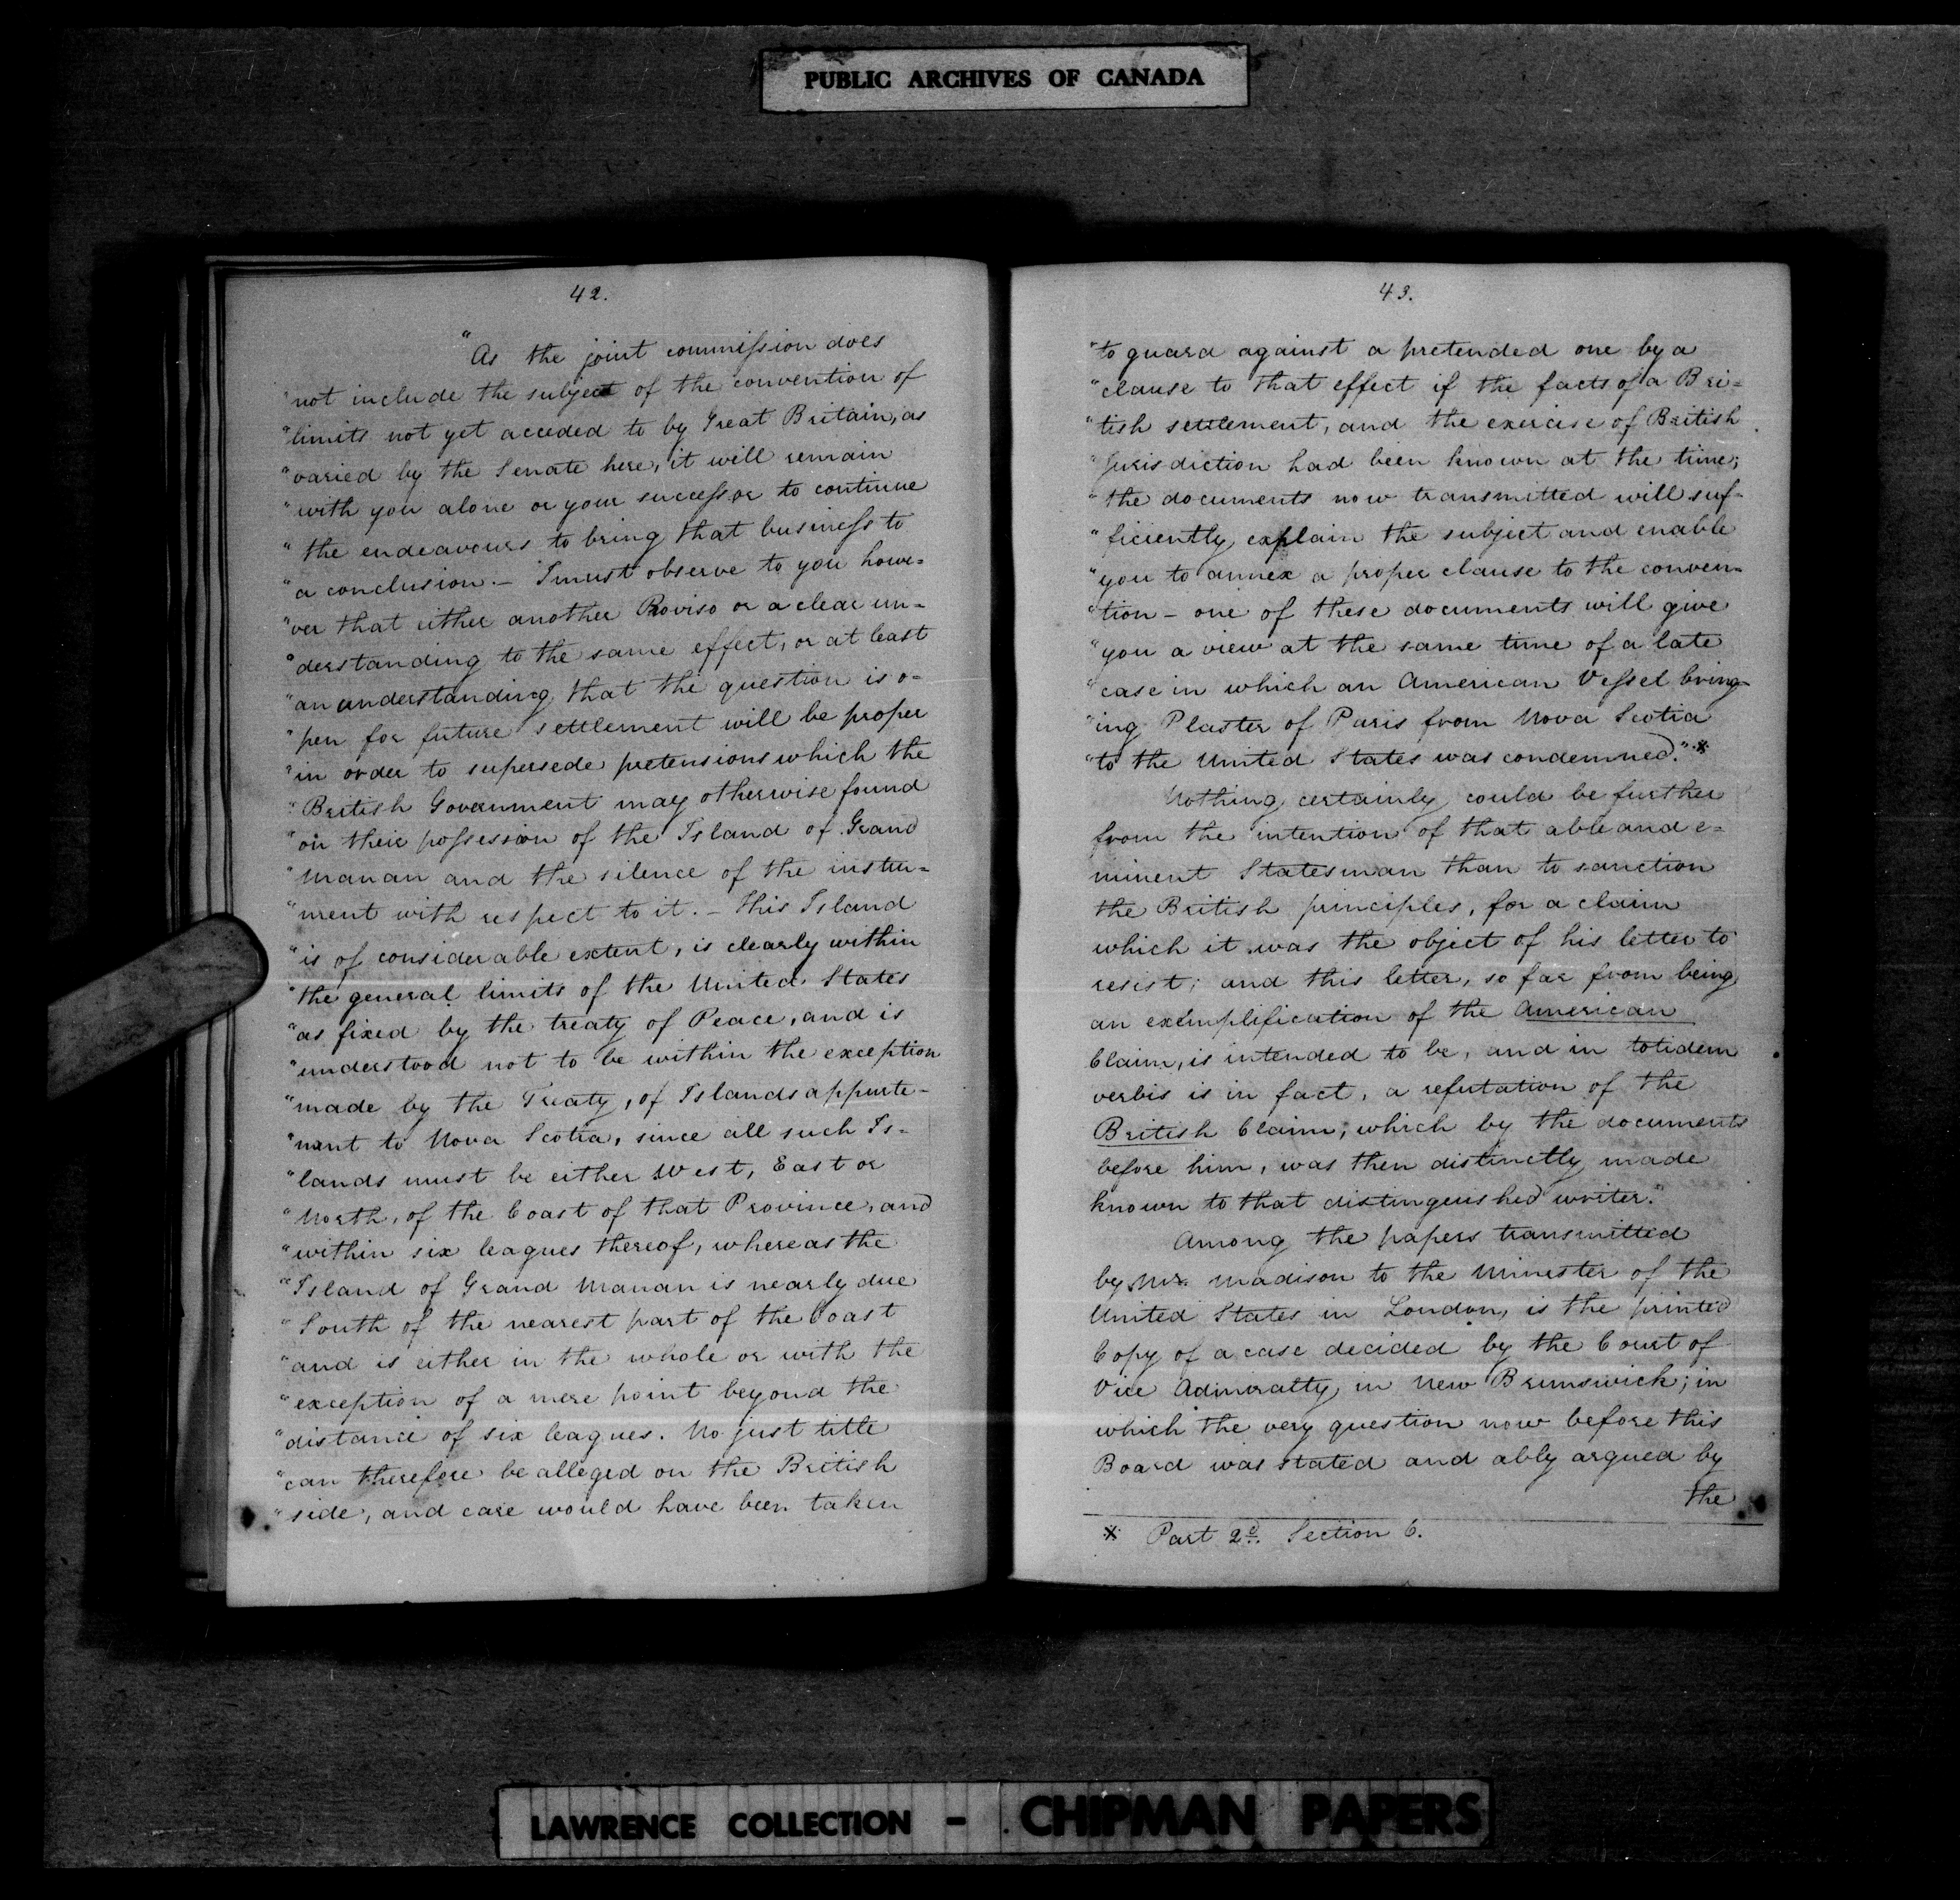 PUBLIC ARCHIVES OF CANADA
42.
"As the joint commission does
"not include the subject of the convention of
"limits not yet acceded to by Great Britain, as
"varied by the Senate here, it will remain
"with you alone or your successor to continue
"the endeavours to bring that business to
"a conclusion. – I must observe to you howe=
"ver that either another Proviso or a clear un=
"derstanding to the same effect, or at least
"an understanding that the question is o-
"pen for future settlement will be proper
"in order to supersede pretensions which the
"British Government may otherwise found
"on their possession of the Island of Grand
"Manan and the silence of the instru=
"ment with respect to it. – This Island
"is of considerable extent, is clearly within
"the general limits of the United States
"as fixed by the treaty of Peace, and is
"understood not to be within the exception
"made by the Treaty, of Islands appurte-
"nant to Nova Scotia, since all such Is-
"lands must be either West, East or
"North, of the Coast of that Province, and
"within six leagues thereof, whereas the
"Island of Grand Manan is nearly due
"South of the nearest part of the Coast
"and is either in the whole or with the
"exception of a mere point beyond the
"distance of six leagues. No just title
"can therefore be alleged on the British
"side, and care would have been taken
43.
"to guard against a pretended one by a
"clause to that effect if the facts of a Bri=
"tish settlement, and the exercise of British
"Jurisdiction had been known at the time;
"the documents now transmitted will suf-
"ficiently explain the subject and enable
"you to annex a proper clause to the conven=
"tion – one of these documents will give
"you a view at the same time of a late
"case in which an American Vessel bring-
"ing Plaster of Paris from Nova Scotia
"to the United States was condemned." *
Nothing certainly could be further
from the intention of that able and e=
minent Statesman than to sanction
the British principles, for a claim
which it was the object of his letter to
resist; and this letter, so far from being
an exemplification of the American
Claim, is intended to be, and in totidem
verbis is in fact, a refutation of the
British Claim, which by the documents
before him, was then distinctly made
known to that distinguished writer."
Among the papers transmitted
by Mr. Madison to the Minister of the
United States in London, is the printed
Copy of a case decided by the Court of
Vice Admiralty in New Brunswick; in
which the very question now before this
Board was stated and ably argued by
the
* Part 2d. Section 6.
LAWRENCE COLLECTION - CHIPMAN PAPERS